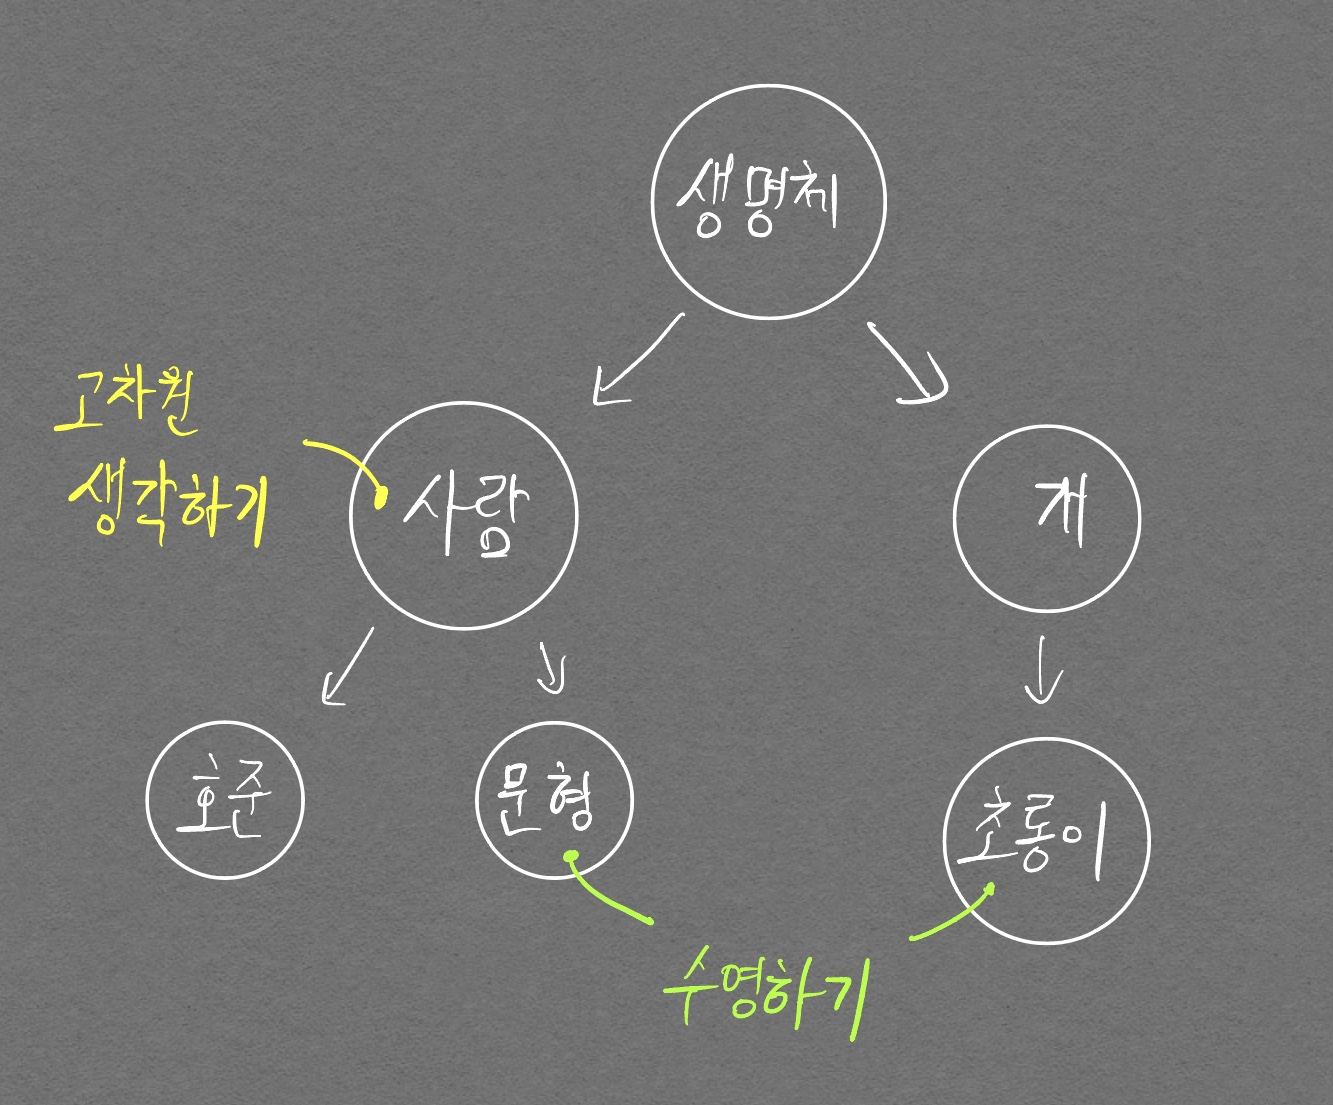 생명체
고차원
생각하기
사람
개
호준
문형
초롱이
수영하기